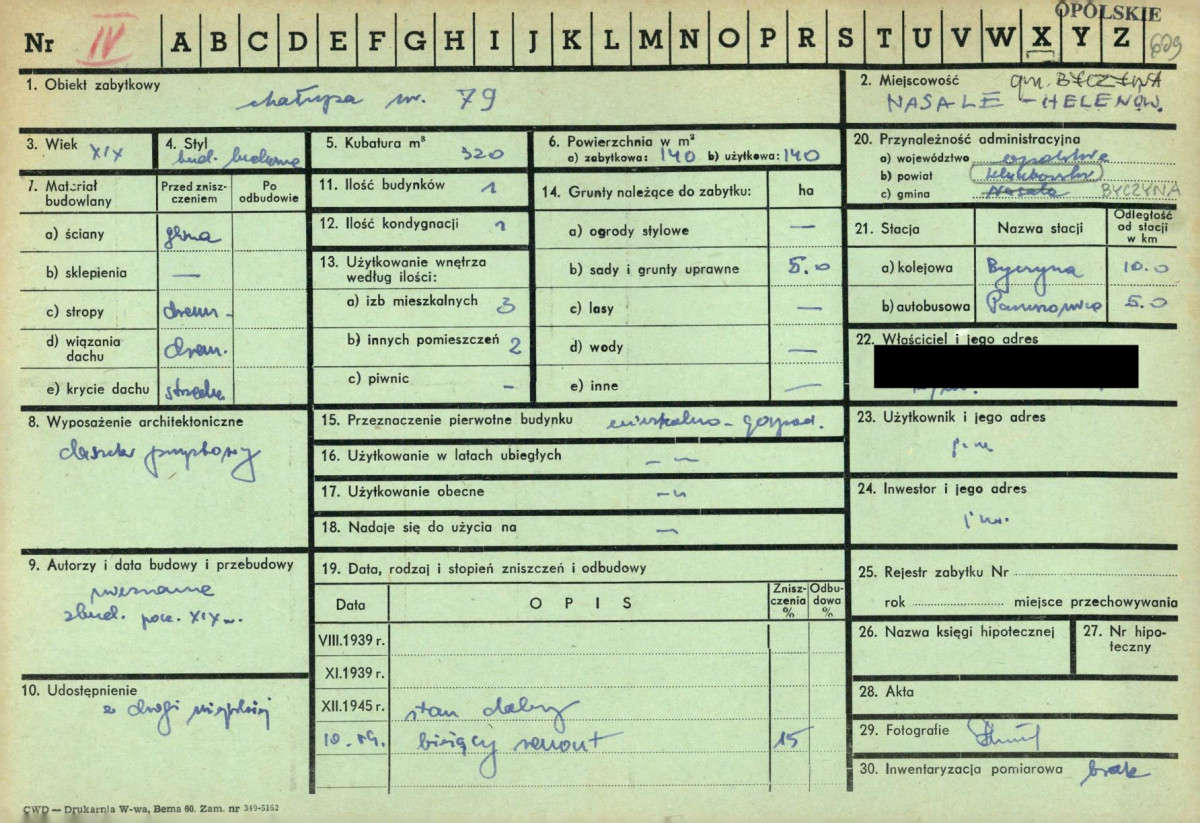 OPOLSKIE
Nr IV A B C D E F G H I J K L M N O P R S T U V W X Y Z 609
1. Obiekt zabytkowy
chałupa nr. 79
2. Miejscowość gm. BYCZYNA
NASALE - HELENÓW.
3. Wiek XIX
4. Styl
bud. ludowe
5. Kubatura m³ 320
6. Powierzchnia w m²
a) zabytkowa: 140 b) użytkowa: 140
20. Przynależność administracyjna
a) województwo opolskie
b) powiat kluczborski
c) gmina Nasale BYCZYNA
7. Materiał budowlany
Przed zniszczeniem
Po odbudowie
a) ściany glina
b) sklepienia —
c) stropy drewn.
d) wiązania dachu drewn.
e) krycie dachu strzecha
11. Ilość budynków 1
12. Ilość kondygnacji 1
13. Użytkowanie wnętrza
według ilości:
a) izb mieszkalnych 3
b) innych pomieszczeń 2
c) piwnic -
14. Grunty należące do zabytku: ha
a) ogrody stylowe —
b) sady i grunty uprawne 5.0
c) lasy —
d) wody —
e) inne —
21. Stacja
Nazwa stacji
Odległość od stacji w km
a) kolejowa Byczyna 10.0
b) autobusowa 5.0
22. Właściciel i jego adres
8. Wyposażenie architektoniczne
daszek przyzbowy
15. Przeznaczenie pierwotne budynku mieszkalno - gospod.
16. Użytkowanie w latach ubiegłych — " —
17. Użytkowanie obecne — " —
18. Nadaje się do użycia na —
23. Użytkownik i jego adres
j. w.
24. Inwestor i jego adres
j. w.
9. Autorzy i data budowy i przebudowy
nieznane
zbud. pocz. XIX w.
10. Udostępnienie
z drogi wiejskiej
19. Data, rodzaj i stopień zniszczeń i odbudowy
Data
OPIS
Zniszczenia %
Odbudowa %
VIII.1939 r.
XI.1939 r.
XII.1945 r. stan dobry
10. 59. bieżący remont 15
25. Rejestr zabytku Nr
rok miejsce przechowywania
26. Nazwa księgi hipotecznej
27. Nr hipoteczny
28. Akta
29. Fotografie
30. Inwentaryzacja pomiarowa brak
CWD — Drukarnia W-wa, Bema 60. Zam. nr 349-5162